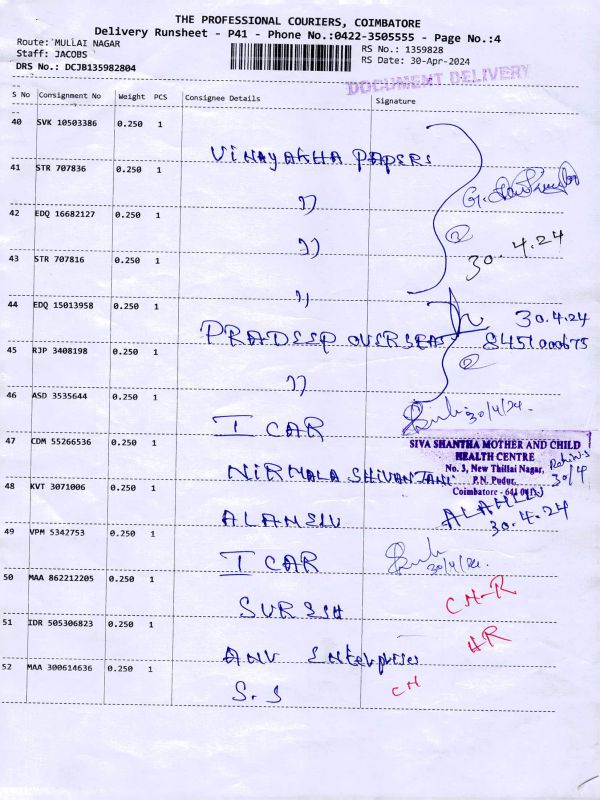 THE PROFESSIONAL COURIERS, COIMBATORE
Delivery Runsheet - P41 - Phone No.:0422-3505555 - Page No.:4
Route: MULLAI NAGAR
Staff: JACOBS
DRS No.: DCJB135982804
RS No.: 1359828
RS Date: 30-Apr-2024
DOCUMENT DELIVERY
S No Consignment No Weight PCS Consignee Details Signature
40 SVK 10503386 0.250 1 VINAYAKHA PAPERS
41 STR 707836 0.250 1 ,,
42 EDQ 16682127 0.250 1 ,,
30.4.24
43 STR 707816 0.250 1 ,,
44 EDQ 15013958 0.250 1 PRADEEP OVERSEAS 30.4.24
8451000675
45 RJP 3408198 0.250 1 ,,
46 ASD 3535644 0.250 1 I CAR 30/4/24.
47 CDM 55266536 0.250 1 NIRMALA SHIVANJANI
SIVA SHANTHA MOTHER AND CHILD
HEALTH CENTRE
No. 3, New Thillai Nagar,
P.N. Pudur,
Coimbatore - 641 041
30/4
48 KVT 3071006 0.250 1 ALAMELU ALAMELU
30.4.24
49 VPM 5342753 0.250 1 I CAR 30/4/24.
50 MAA 862212205 0.250 1 SURESH CH-R
51 IDR 505306823 0.250 1 ANU Enterprises HR
52 MAA 300614636 0.250 1 S.S CH